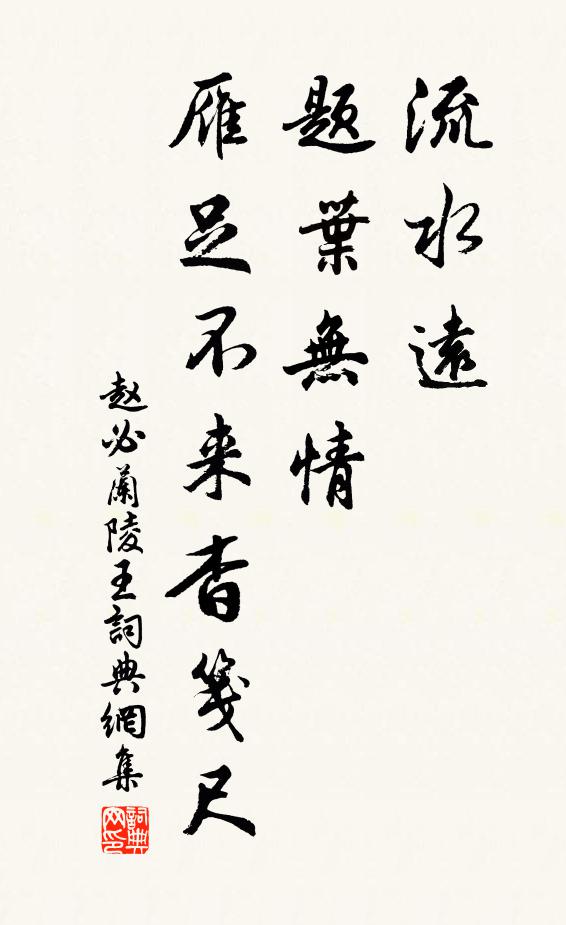 流水遠
題葉無情
雁足不来杳箋尺
赵必蘭陵王詞典網集
詞典
网印